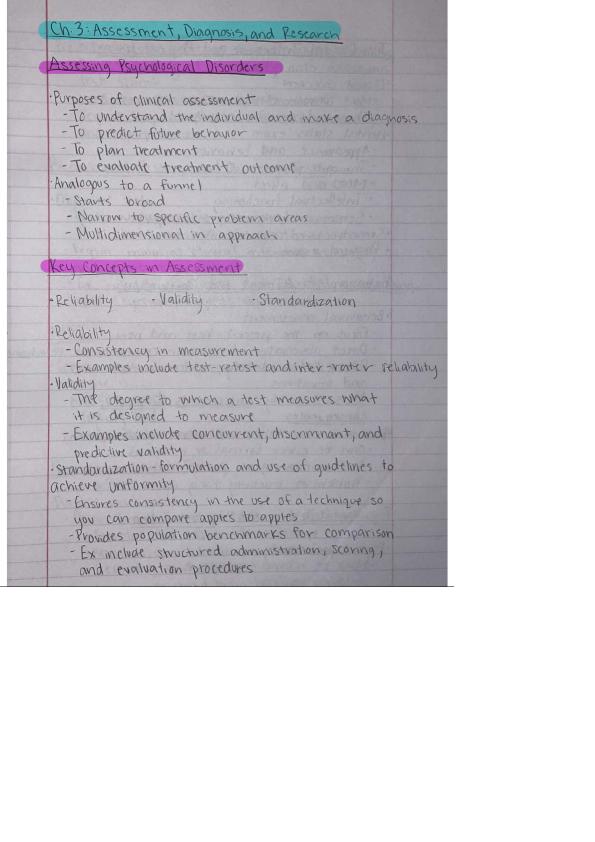 Ch.3: Assessment, Diagnosis, and Research
Assessing Psychological Disorders
·Purposes of clinical assessment
- To understand the individual and make a diagnosis
- To predict future behavior
- To plan treatment
- To evaluate treatment outcome
·Analogous to a funnel
- Starts broad
- Narrow to specific problem areas
- Multidimensional in approach
Key Concepts in Assessment
·Reliability ·Validity ·Standardization
·Reliability
- Consistency in measurement
- Examples include test-retest and inter-rater reliability
·Validity
- The degree to which a test measures what
it is designed to measure
- Examples include concurrent, discriminant, and
predictive validity
·Standardization - formulation and use of guidelines to
achieve uniformity
- Ensures consistency in the use of a technique so
you can compare apples to apples
- Provides population benchmarks for comparison
- Ex include structured administration, scoring,
and evaluation procedures